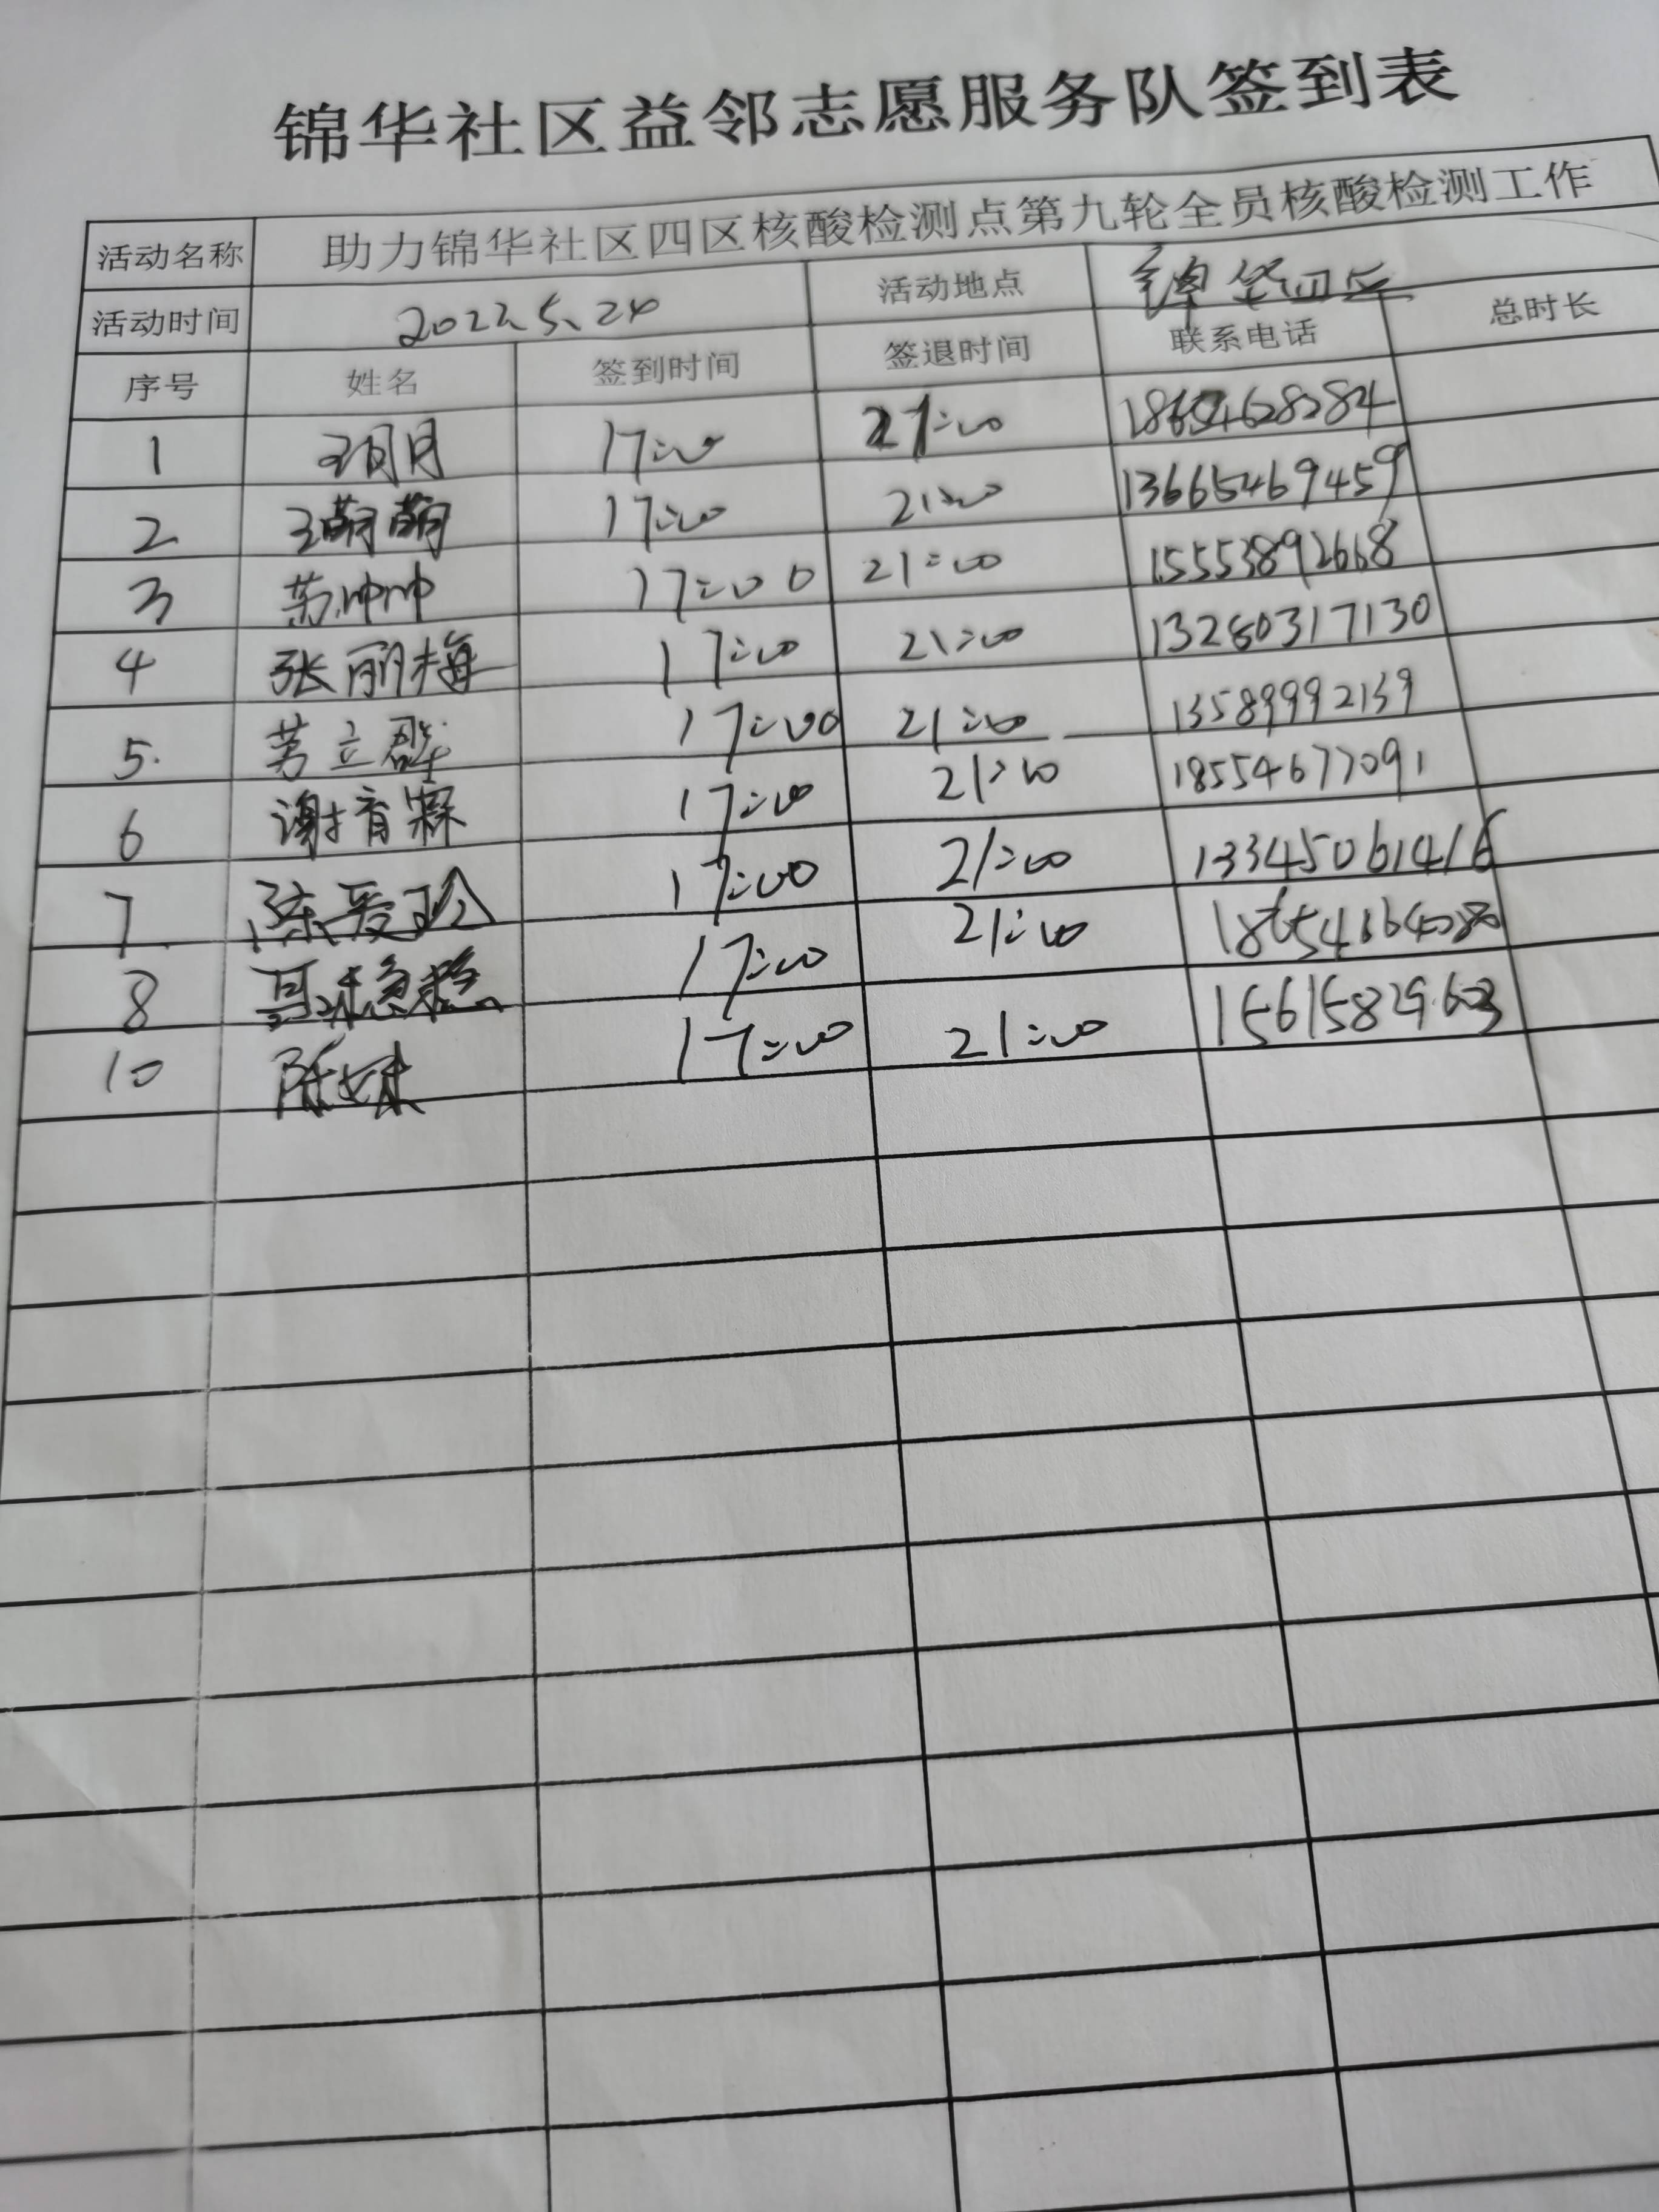 锦华社区益邻志愿服务队签到表
活动名称 助力锦华社区四区核酸检测点第九轮全员核酸检测工作
活动时间 2022.5.24 活动地点 锦华四区
序号 姓名 签到时间 签退时间 联系电话 总时长
1 17:00 21:00
2 王萌萌 17:00 21:00 13665469459
3 苏帅帅 17:00 21:00 15553892668
4 张丽梅 17:00 21:00 13280317130
5. 立群 17:00 21:00 13589992139
6 谢 17:00 21:00 18554677091
7 陈爱玲 17:00 21:00 13345061416
8 17:00 21:00
10 陈 17:00 21:00 15615829603